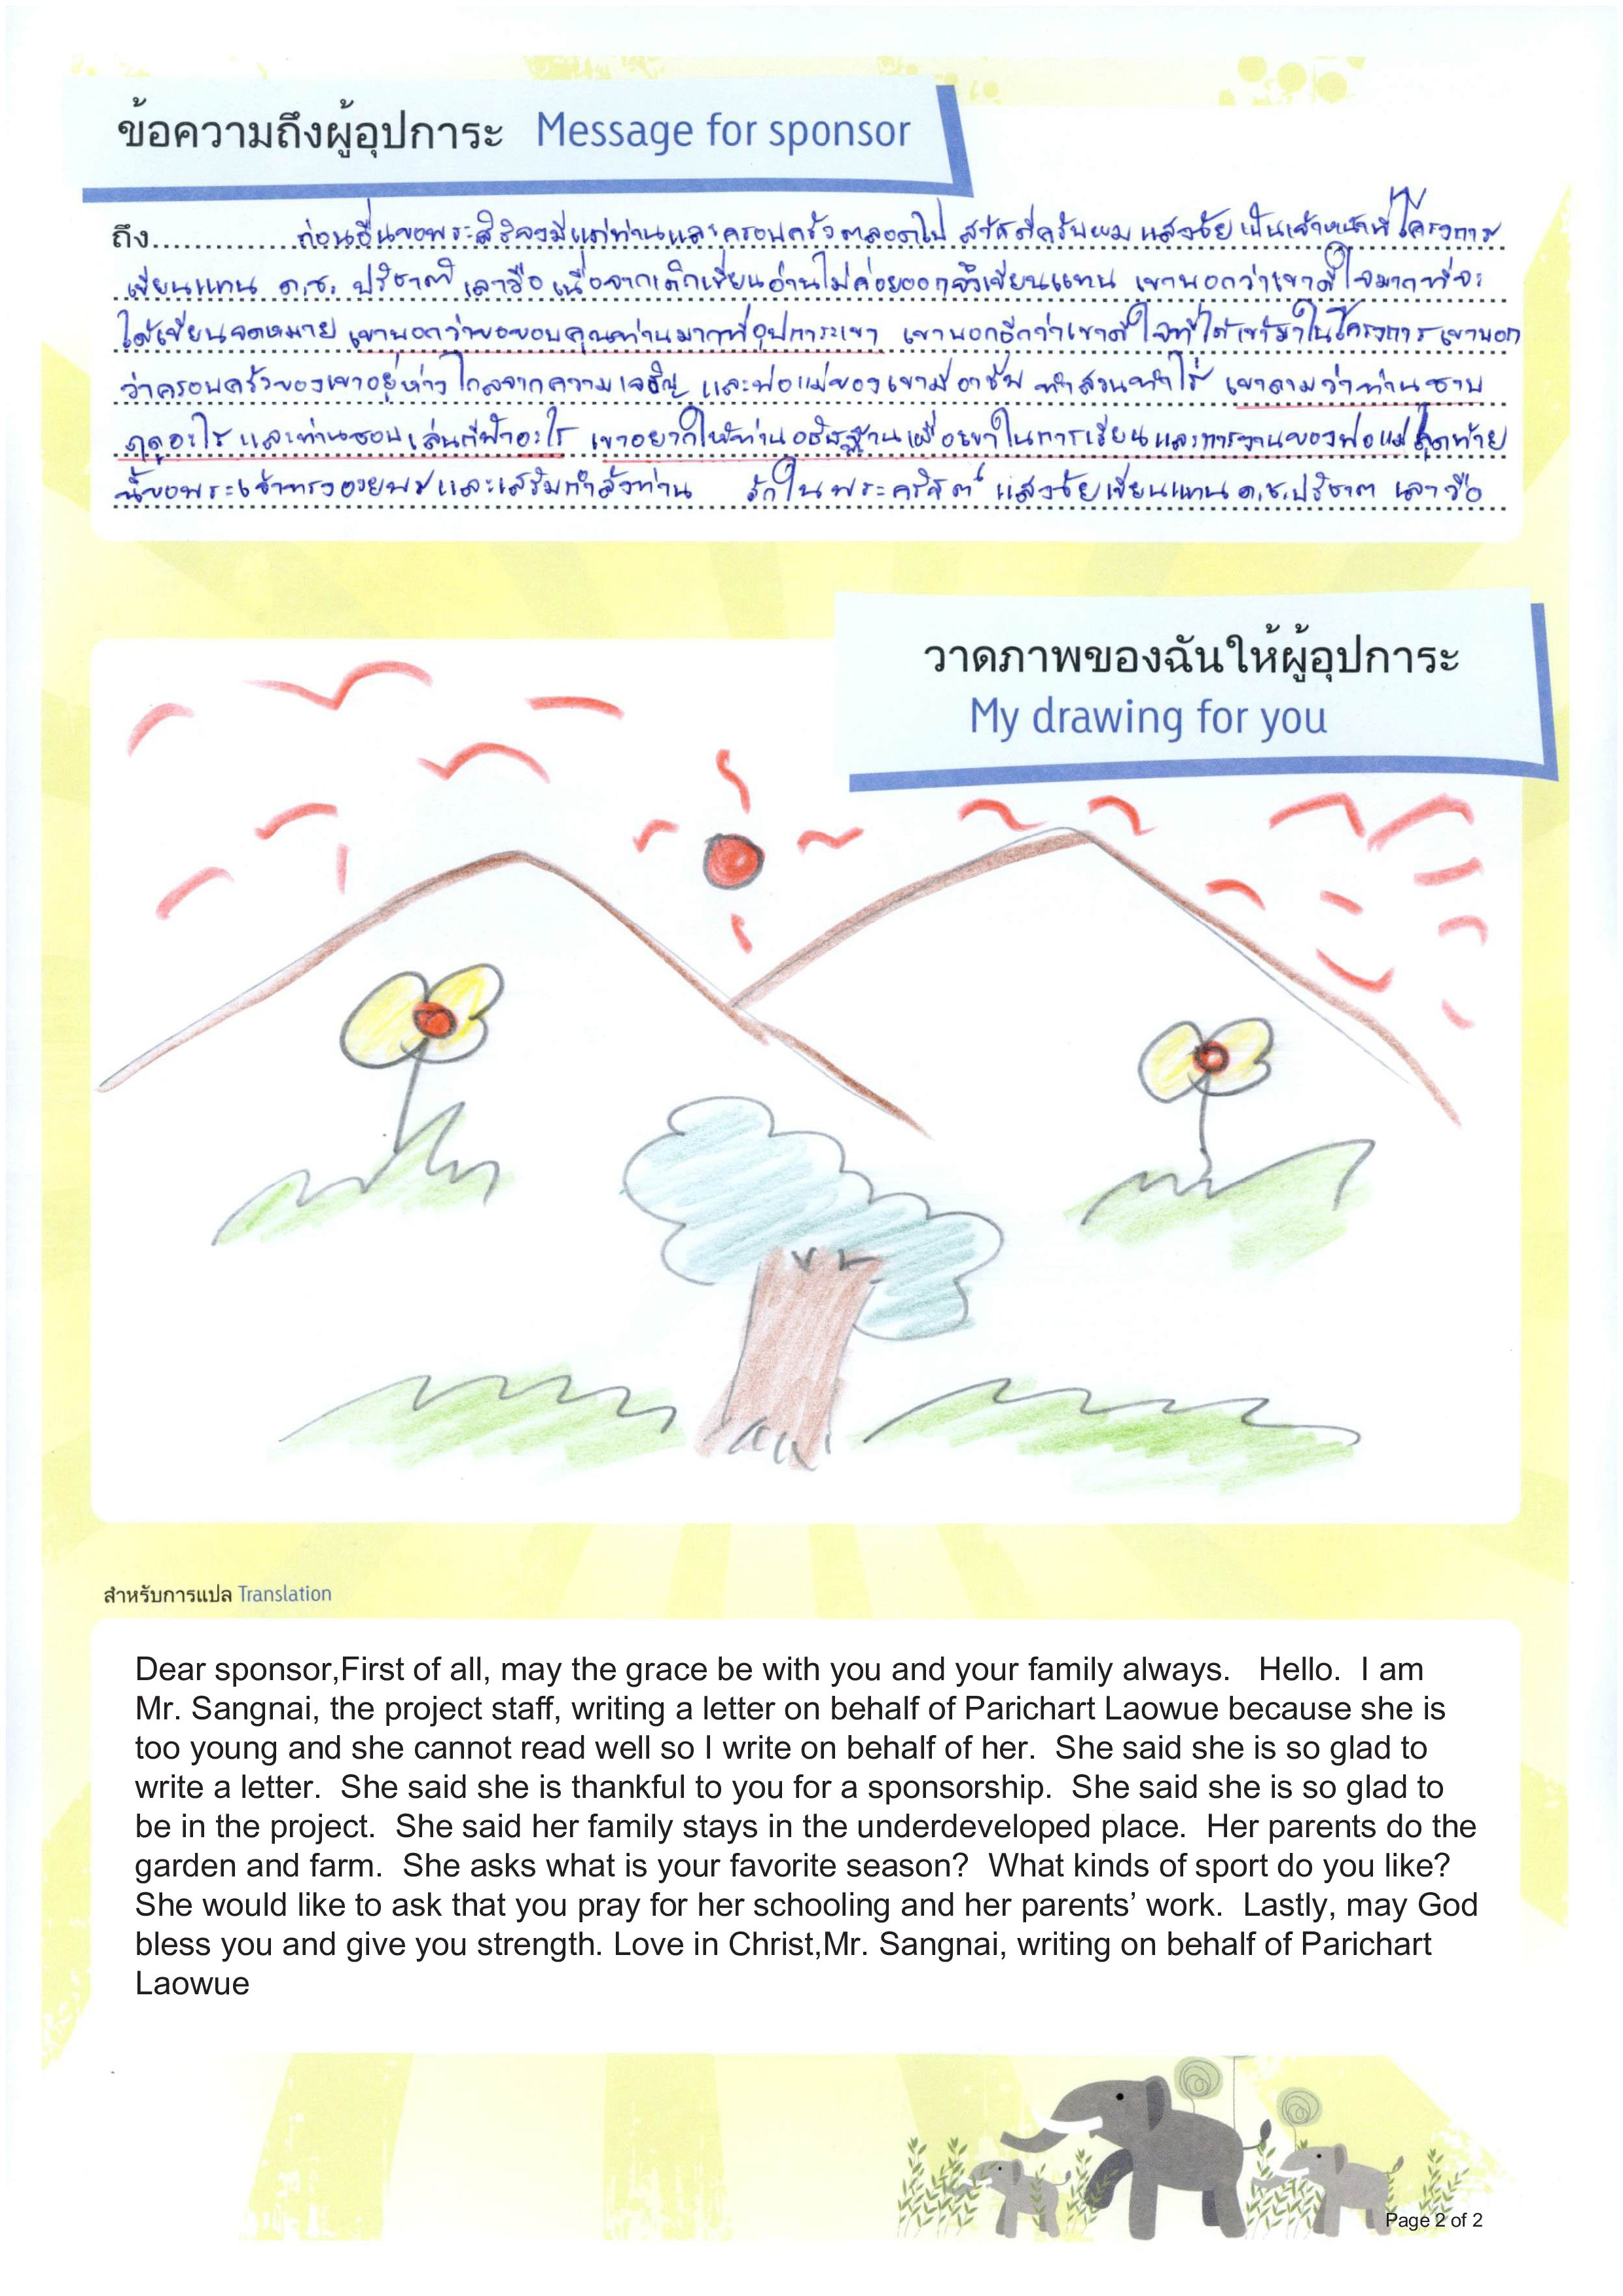 ข้อความถึงผู้อุปการะ Message for sponsor
ถึง..............ก่อนอื่นขอพระสิริจงมีแด่ท่านและครอบครัวตลอดไป สวัสดีครับผม แสงชัย เป็นเจ้าหน้าที่โครงการ
เขียนแทน ด.ช. ปริชาต เลาวือ เนื่องจากเด็กเขียนอ่านไม่ค่อยออกจึงเขียนแทน เขาบอกว่าเขาดีใจมากที่จะ
ได้เขียนจดหมาย เขาบอกว่าขอขอบคุณท่านมากที่อุปการะเขา เขาบอกอีกว่าเขาดีใจที่ได้เข้ามาในโครงการ เขาบอก
ว่าครอบครัวของเขาอยู่ห่างไกลจากความเจริญ และพ่อแม่ของเขามีอาชีพ ทำสวนทำไร่ เขาถามว่าท่านชอบ
ฤดูอะไร และท่านชอบเล่นกีฬาอะไร เขาอยากให้ท่านอธิษฐานเผื่อเขาในการเรียนและการงานของพ่อแม่ สุดท้าย
นี้ขอพระเจ้าทรงอวยพรและเสริมกำลังท่าน รักในพระคริสต์ แสงชัยเขียนแทน ด.ช.ปริชาต เลาวือ
วาดภาพของฉันให้ผู้อุปการะ
My drawing for you
สำหรับการแปล Translation
Dear sponsor,First of all, may the grace be with you and your family always. Hello. I am
Mr. Sangnai, the project staff, writing a letter on behalf of Parichart Laowue because she is
too young and she cannot read well so I write on behalf of her. She said she is so glad to
write a letter. She said she is thankful to you for a sponsorship. She said she is so glad to
be in the project. She said her family stays in the underdeveloped place. Her parents do the
garden and farm. She asks what is your favorite season? What kinds of sport do you like?
She would like to ask that you pray for her schooling and her parents’ work. Lastly, may God
bless you and give you strength. Love in Christ,Mr. Sangnai, writing on behalf of Parichart
Laowue
Page 2 of 2